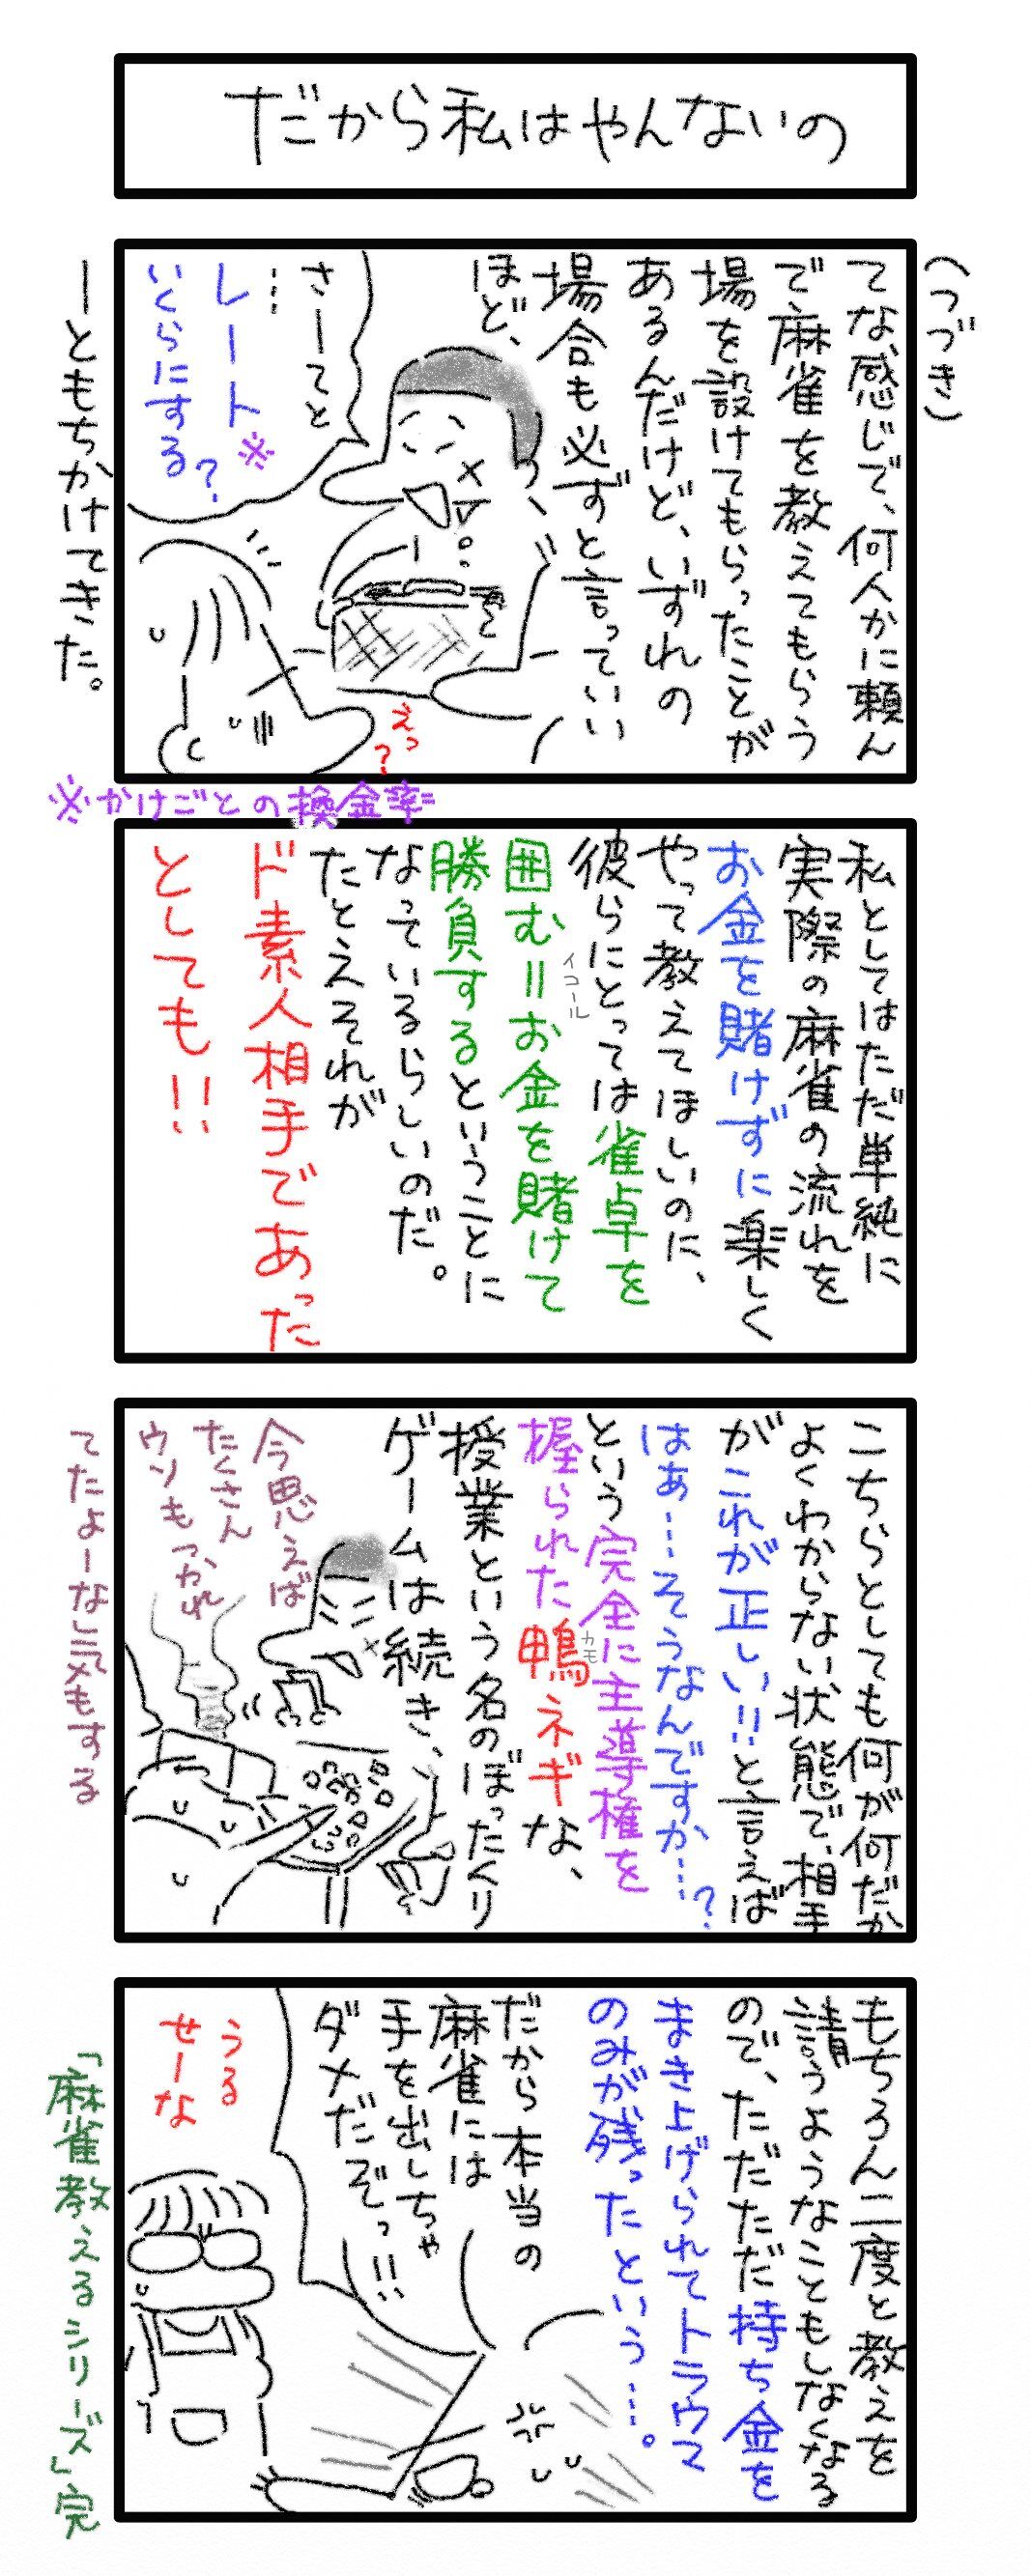 だから私はやんないの
(つづき)
てな感じで、何人かに頼ん
で麻雀を教えてもらう
場を設けてもらったことが
あるんだけど、いずれの
場合も必ずと言っていい
ほど、
さーてと
…
レート※
いくらにする?
えっ?
ーともちかけてきた。
※かけごとの換金率
私としてはただ単純に
実際の麻雀の流れを
お金を賭けずに楽しく
やって教えてほしいのに、
彼らにとっては雀卓を
囲む=お金を賭けて
イコール
勝負するということに
なっているらしいのだ。
たとえそれが
ド素人相手であった
としても!!
こちらとしても何が何だか
よくわからない状態で、相手
がこれが正しい!!と言えば
はあ…そうなんですか…?
という完全に主導権を
握られた鴨ネギな、
カモ
授業という名のぼったくり
ゲームは続き、
今思えば
たくさん
ウソもつかれ
てたよーな気もする
もちろん二度と教えを
請うようなこともしなくなる
ので、ただただ持ち金を
まき上げられてトラウマ
のみが残ったという…。
だから本当の
麻雀には
手を出しちゃ
ダメだぞっ!!
うる
せーな
「麻雀教えるシリーズ」完